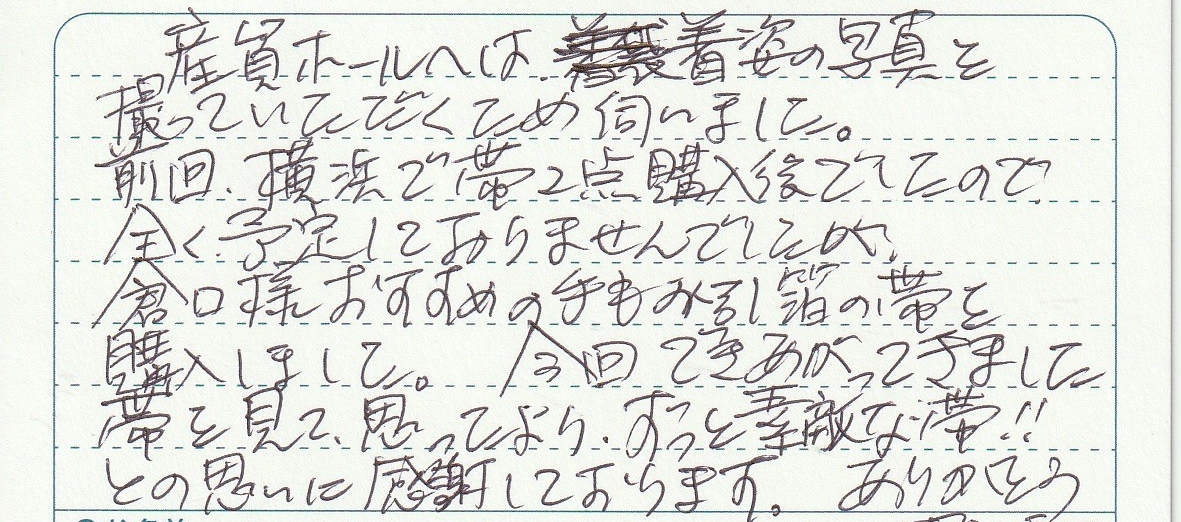 産貿ホールへは、着姿の写真を
撮っていただくため伺いました。
前回、横浜で帯2点購入後でしたので、
全く予定しておりませんでしたが、
倉口様おすすめの手もみ引箔の帯を
購入しまして。 今回できあがってきました
帯を見て、思ってより、ずっと素敵な帯!!
との思いに感謝しております。 ありがとう